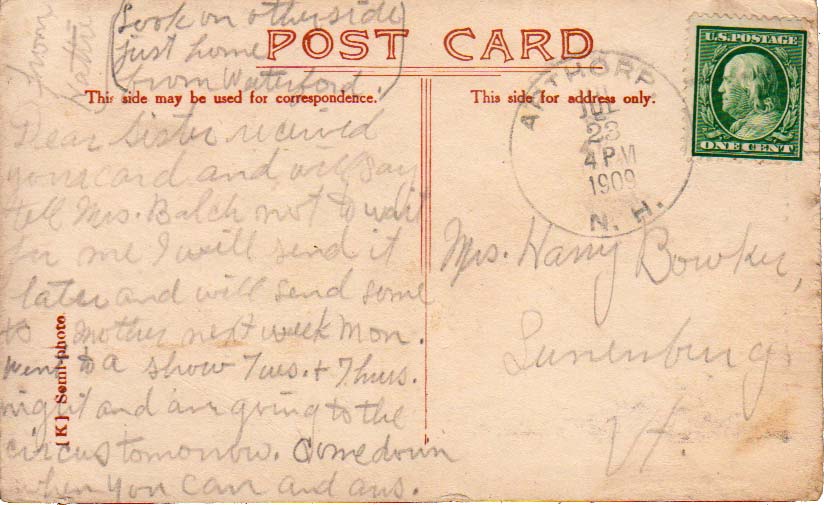 from
Hattie
(Look on otherside
just home
from Waterford.)
POST CARD
This side may be used for correspondence.
This side for address only.
APTHORP.
JUL
23
4 PM
1909
N. H.
U.S. POSTAGE
ONE CENT
Dear Sister received
your card and will say
tell Mrs. Balch not to wait
for me I will send it
later and will send some
to Mother next week Mon.
Went to a show Tues. + Thurs.
night and are going to the
circus tomorrow. Come down
when you can and ans.
[K] Semi-photo
Mrs. Harry Bowker,
Lunenburg
Vt.